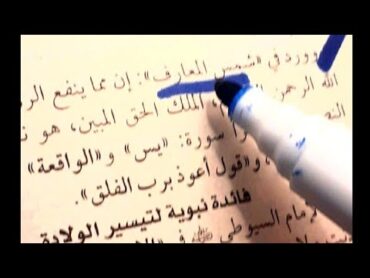 وورد في «شمس المعارف»: إن مما ينفع
الله الرحمن الملك الحق المبين، هو
سورة: «يس» و«الواقعة»
و«قول أعوذ برب الفلق».
فائدة نبوية لتيسير الولادة
الإمام السيوطي في